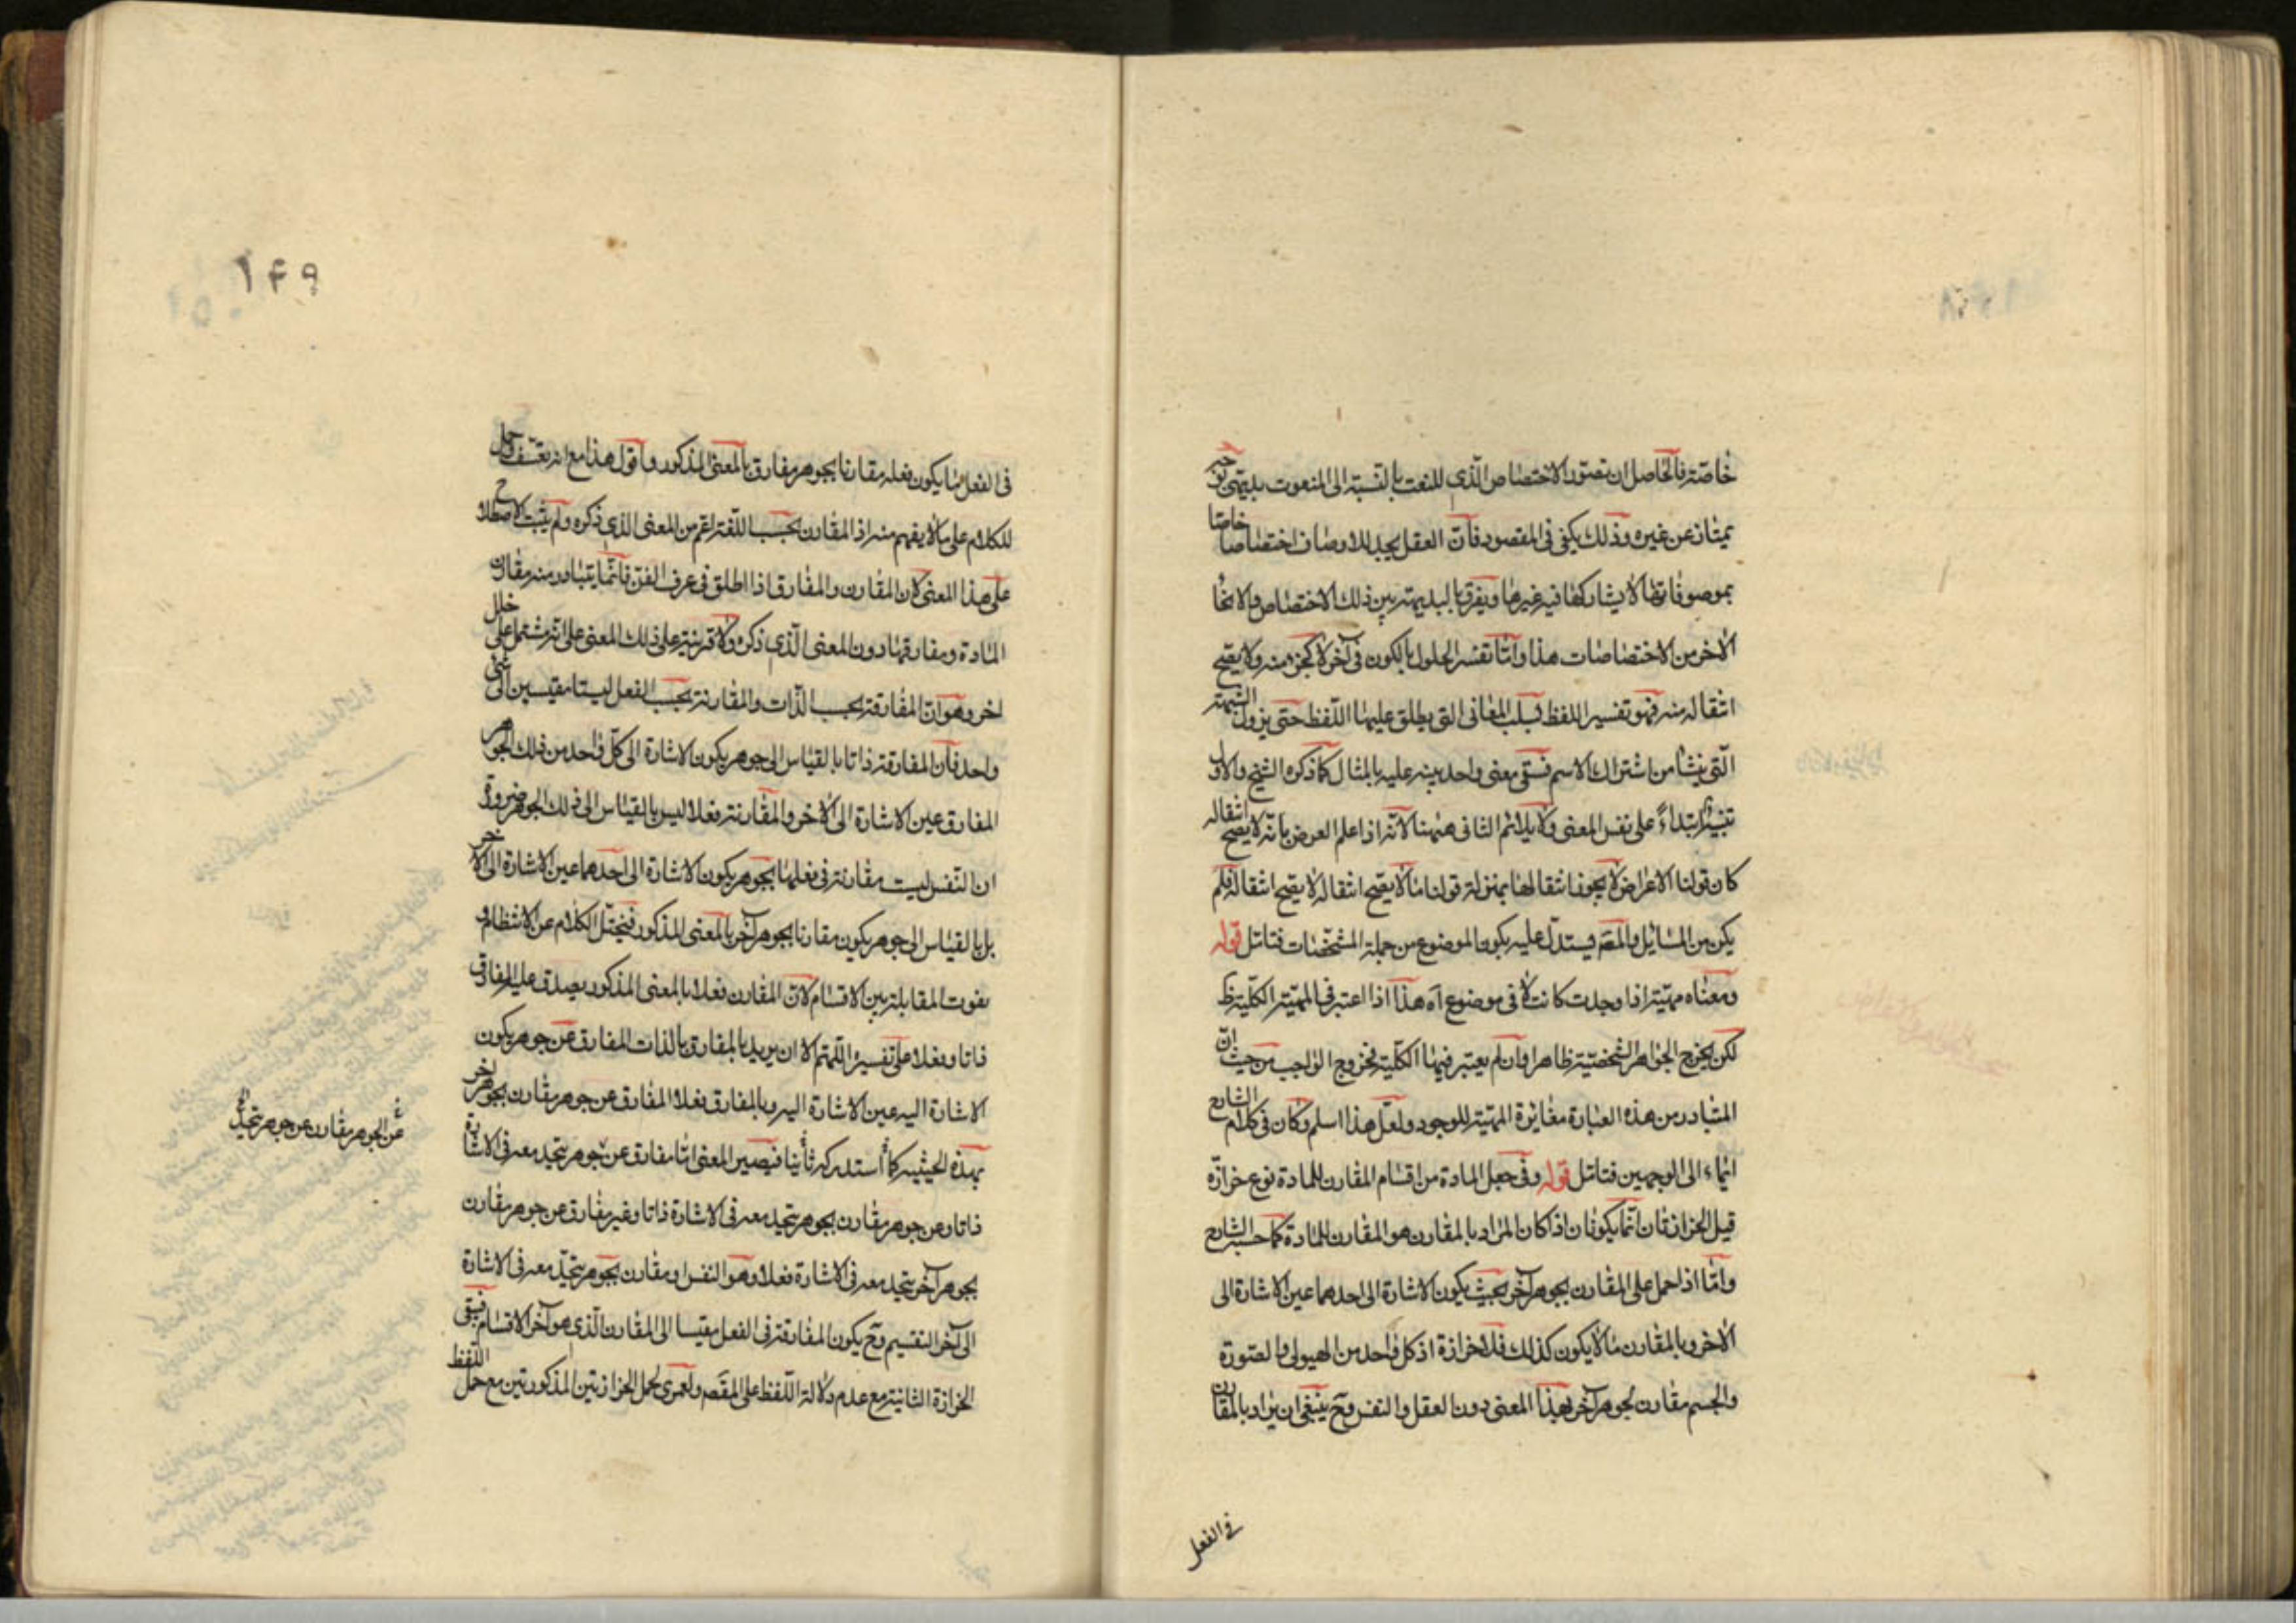 خاصّة فالحاصل ان تصوّر الاختصاص الّذى للنعت بالنّسبة الى المنعوت بديهى
يمتاز عن غيره وذلك يكفى فى المقصود فانّ العقل يجد للاوصاف اختصاصا خاصّا
بموصوفاتها لا يشاركها فيه غيرها ويفرق بالبديهة بين ذلك الاختصاص والانحا
الاخر من الاختصاصات هذا وامّا تفسير الحلول بالكون فى آخر لا كجزء منه ولا يصّح
انتقاله منه فهو تفسير اللفظ بسلب المعانى التى يطلق عليها اللّفظ حتى يزول الشبهة
التّى ينشأ من اشتراك الاسم فبقى معنى واحد ينبه عليه بالمثال كما ذكره الشيخ والاول
تنبيه ابتداءً على نفس المعنى ولا يلائم الثانى ههنا لانّه اذا علم العرض بانّه لا يصح انتقاله
كان قولنا الاعراض لا يجوز انتقالها بمنزلة قولنا ما لا يصّح انتقاله لا يصّح انتقاله فلم
يكن من المسائل والمصّ يستدلّ عليه بكون الموضوع من جملة المشخّصات فتامّل قوله
ومعناه مهيّة اذا وجدت كانت لا فى موضوع آه هذا اذا اعتبر فى المهيّة الكلّية
لكن يخرج الجواهر الشخصيّة ظاهرا وان لم يعتبر فيها الكلّية فخروج الواجب من حيث انّ
المتبادر من هذه العبارة مغايرة المهيّة للوجود ولعلّ هذا اسلم وكان فى كلام الشارح
ايماء الى الوجهين فتامّل قوله وفى جعل المادة من اقسام المقارن للمادة نوع حزازة
قيل الحزازتان انّما يكونان اذا كان المراد بالمقارن هو المقارن للمادة كما حسبه الشارح
وامّا اذا حمل على المقارن بجوهر آخر بحيث يكون الاشارة الى احدهما عين الاشارة الى
الاخر وبالمقارن ما لا يكون كذلك فلا حزازة اذ كل واحد من الهيولى والصّورة
والجسم مقارن بجوهر آخر بهذا المعنى دون العقل والنفس وحّ ينبغى ان يراد بالمقارن
فى الفعل
١۴٩
فى الفعل ما يكون فعله مقارنا بجوهر مفارق بالمعنى المذكور واقول هذا مع انّه تعسّف وحمل
للكلام على ما لا يفهم منه اذ المقارن بحسب اللّغة اعمّ من المعنى الذى ذكره ولم يثبت الاصطلاح
على هذا المعنى لان المقارن والمفارق اذا اطلق فى عرف الفنّ فانّما يتبادر منه مقارن
المادة ومفارقها دون المعنى الّذى ذكره ولا قرينة على ذلك المعنى على انّه مشتمل على خلل
اخر وهو انّ المفارقة بحسب الذّات والمقارنة بحسب الفعل ليستا مقيسين الى شئ
واحد فانّ المفارقة ذاتا بالقياس الى جوهر يكون الاشارة الى كلّ واحد من ذلك الجوهر
المفارق عين الاشارة الى الاخر والمقارنة فعلا ليس بالقياس الى ذلك الجوهر ضرورة
ان النّفس ليست مقارنة فى فعلها بجوهر يكون الاشارة الى احدهما عين الاشارة الى الآخر
بل بالقياس الى جوهر يكون مقارنا بجوهر آخر بالمعنى المذكور فيختلّ الكلام عن الانتظام و
يفوت المقابلة بين الاقسام لانّ المقارن فعلا بالمعنى المذكور يصدق عليه المفارق
ذاتا وفعلا على تفسيره اللّهمّ الا ان يريد بالمفارق بالذات المفارق عن جوهر يكون
الاشارة اليه عين الاشارة اليه وبالمفارق فعلا المفارق عن جوهر مقارن بجوهر آخر
بهذه الحيثية كما استدركه ثانيا فيصير المعنى امّا مفارق عن جوهر يتحد معه فى الاشارة
ذاتا وعن جوهر مقارن بجوهر يتحد معه فى الاشارة ذاتا وغير مفارق عن جوهر مقارن
بجوهر آخر يتحد معه فى الاشارة فعلا وهو النفس او مقارن بجوهر يتحّد معه فى الاشارة
الى آخر التقسيم وحّ يكون المفارقة فى الفعل مقيسا الى المقارن الّذى هو آخر الاقسام فبقى
الحزازة الثانية مع عدم دلالة اللّفظ على المقصّ ولعمرى لحمل الحزازتين المذكورتين مع حمل اللّفظ
عن الجوهر مقارن عن جوهر يتحد